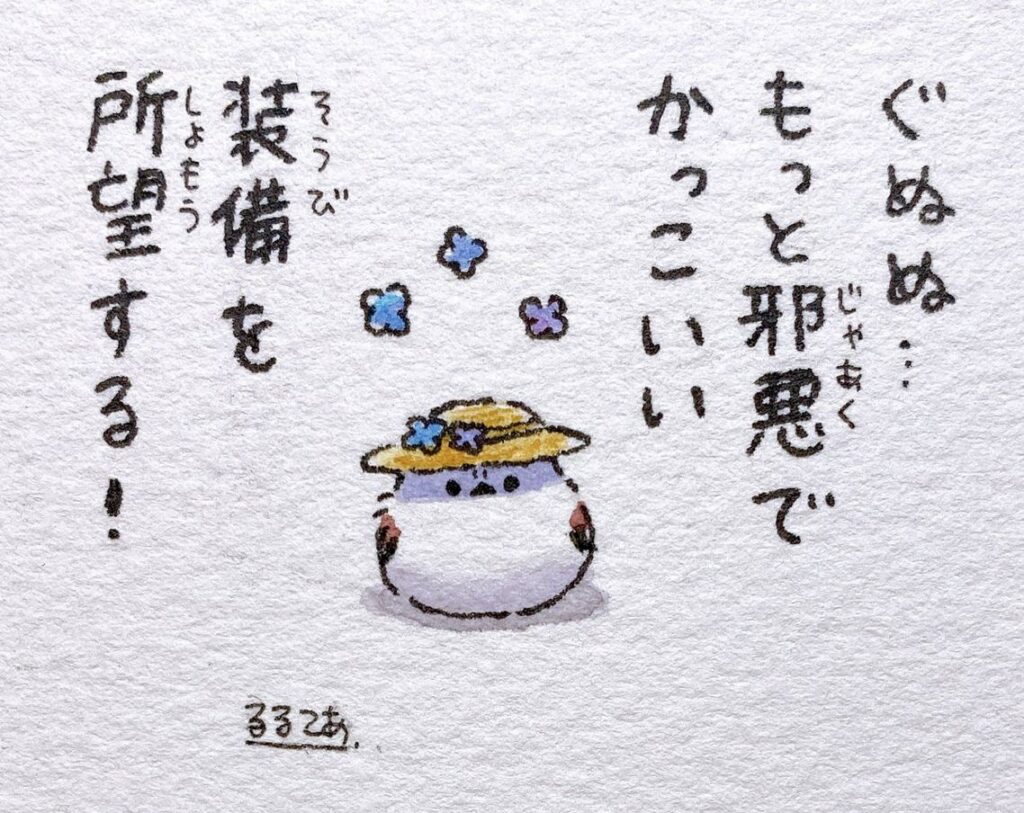 ぐぬぬ…
もっと邪悪で
じゃあく
かっこいい
装備を
そうび
所望する！
しょもう
るるてあ.